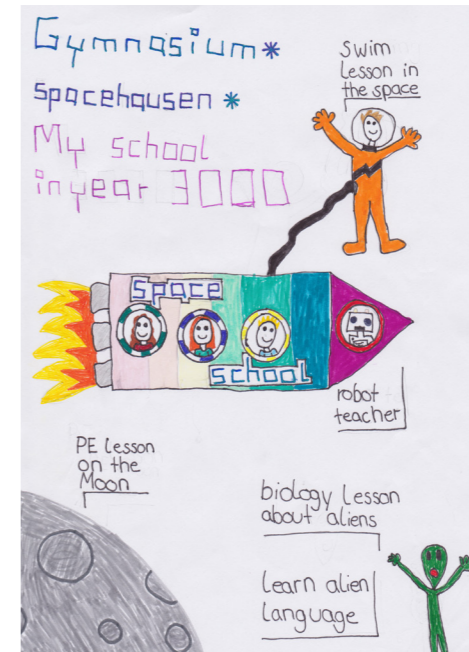 Gymnasium*
Spacehausen *
My school
in year 3000
swim
Lesson in
the space
space
school
robot
teacher
PE Lesson
on the
Moon
biology Lesson
about aliens
Learn alien
Language